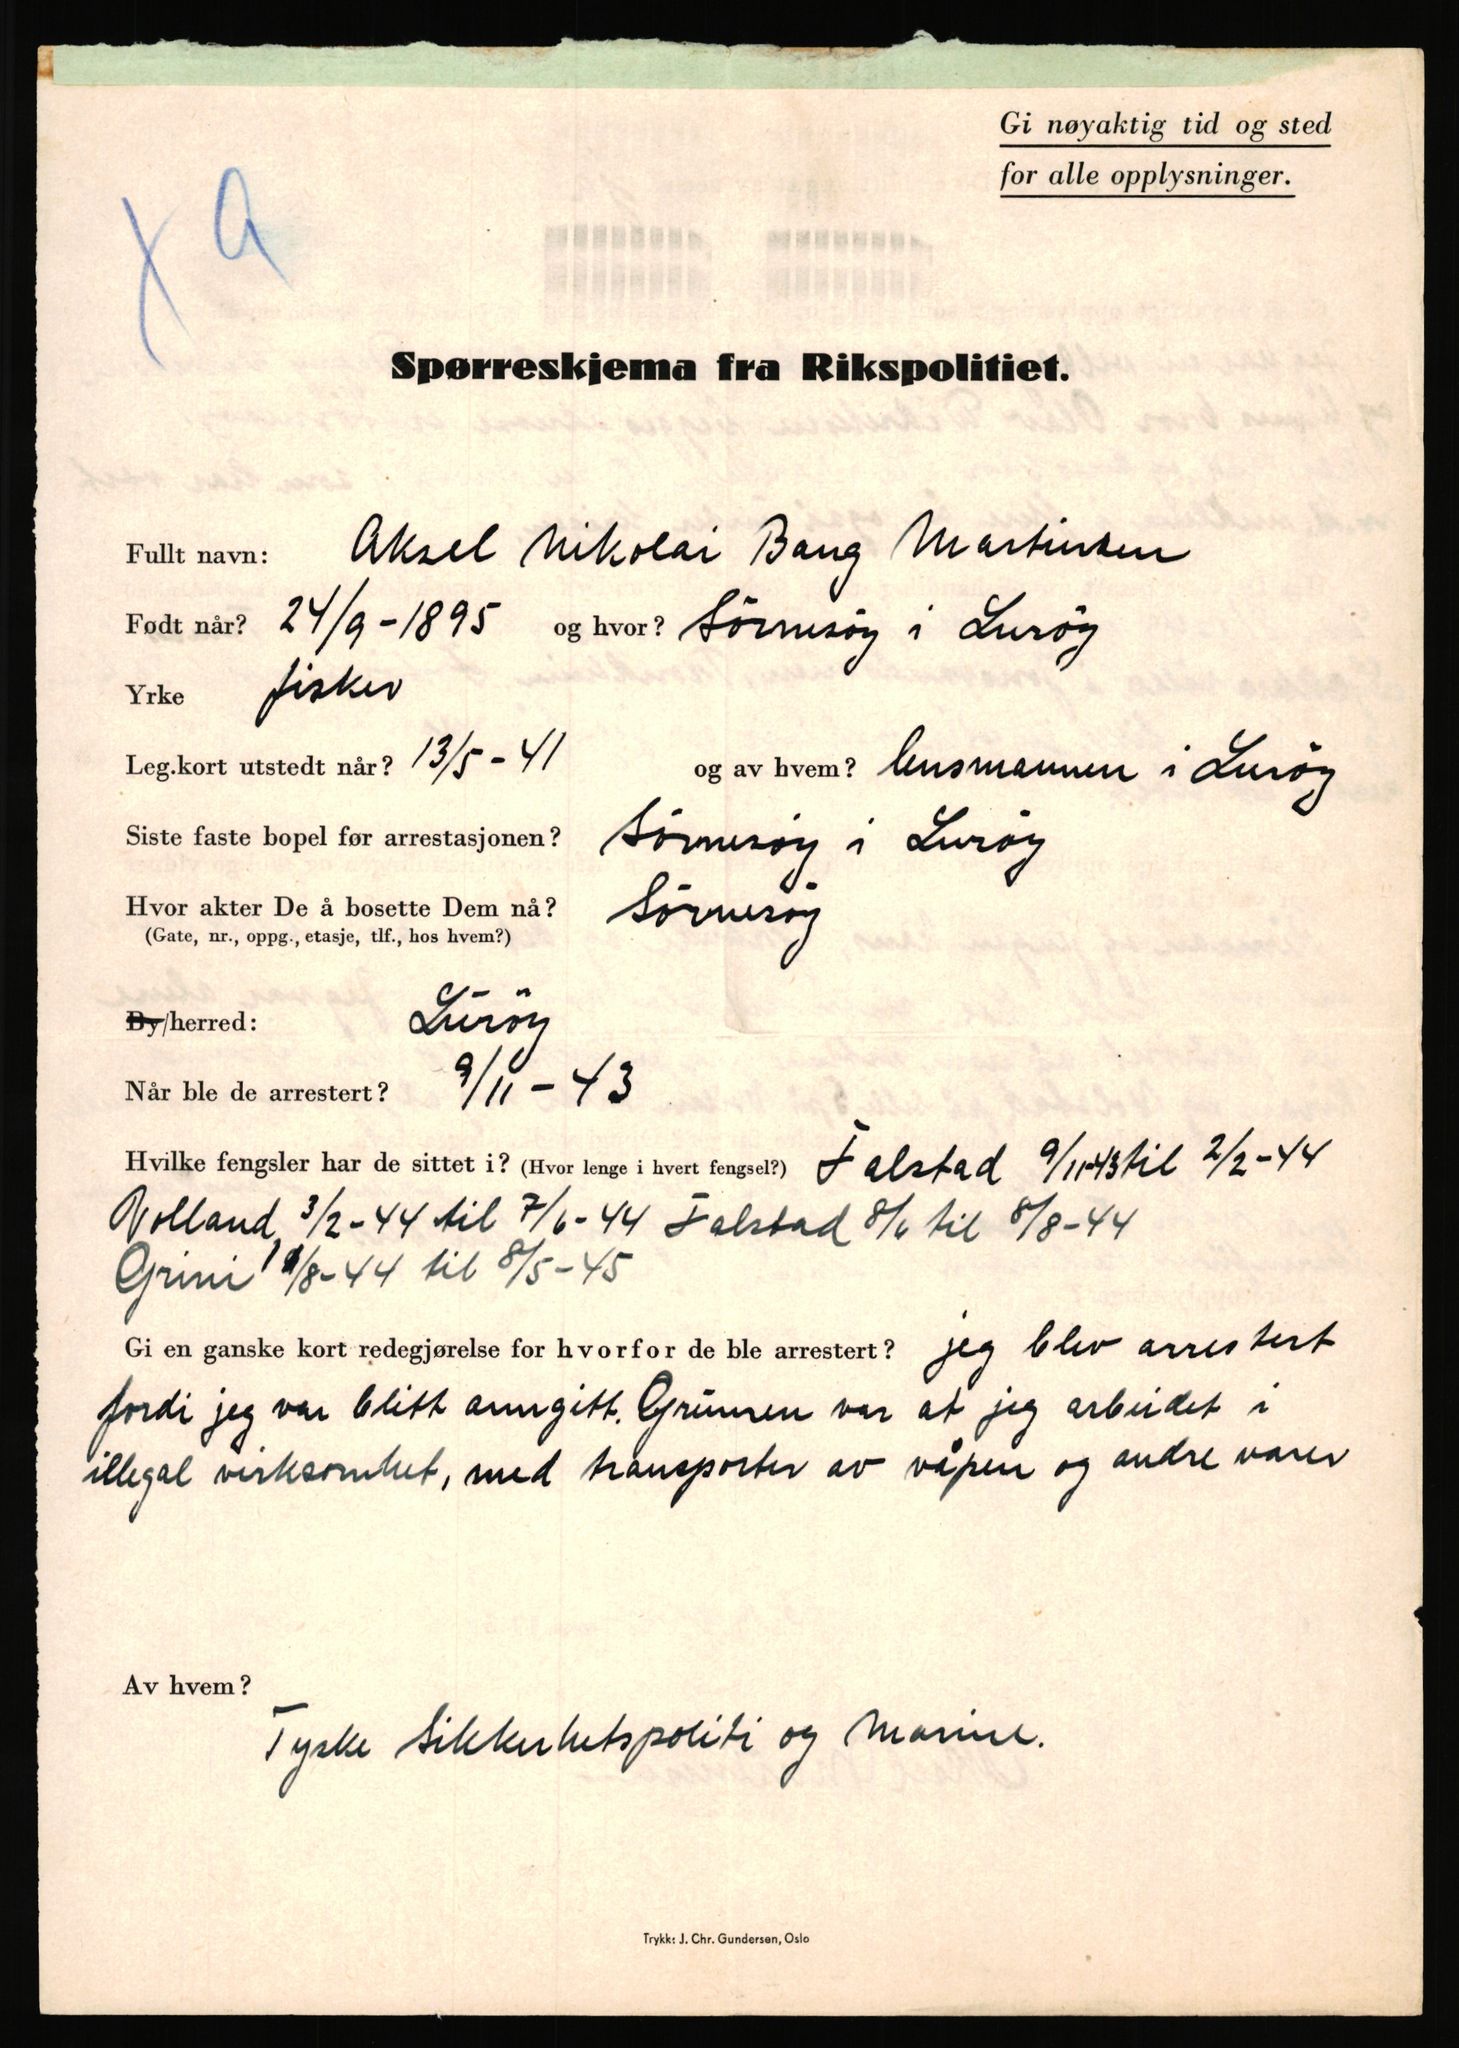 Gi nøyaktig tid og sted
for alle opplysninger.
X a
Spørreskjema fra Rikspolitiet.
Fullt navn: Aksel Nikolai Bang Martinsen
Født når? 24/9-1895 og hvor? Sörnesöy i Luröy
Yrke fisker
Leg.kort utstedt når? 13/5-41 og av hvem? lensmannen i Luröy
Siste faste bopel før arrestasjonen? Sörnesöy i Luröy
Hvor akter De å bosette Dem nå? Sörnesöy
(Gate, nr., oppg., etasje, tlf., hos hvem?)
By/herred: Luröy
Når ble de arrestert? 9/11-43
Hvilke fengsler har de sittet i? (Hvor lenge i hvert fengsel?) Falstad 9/11-43 til 2/2-44
Volland 3/2-44 til 7/6-44 Falstad 8/6 til 8/8-44
Grini 9/8-44 til 8/5-45
Gi en ganske kort redegjørelse for hvorfor de ble arrestert? jeg blev arrestert
fordi jeg var blitt anngitt. Grunnen var at jeg arbeidet i
illegal virksomhet, med transporter av våpen og andre varer
Av hvem?
Tyske Sikkerhetspoliti og Marine.
Trykk: J. Chr. Gundersen, Oslo